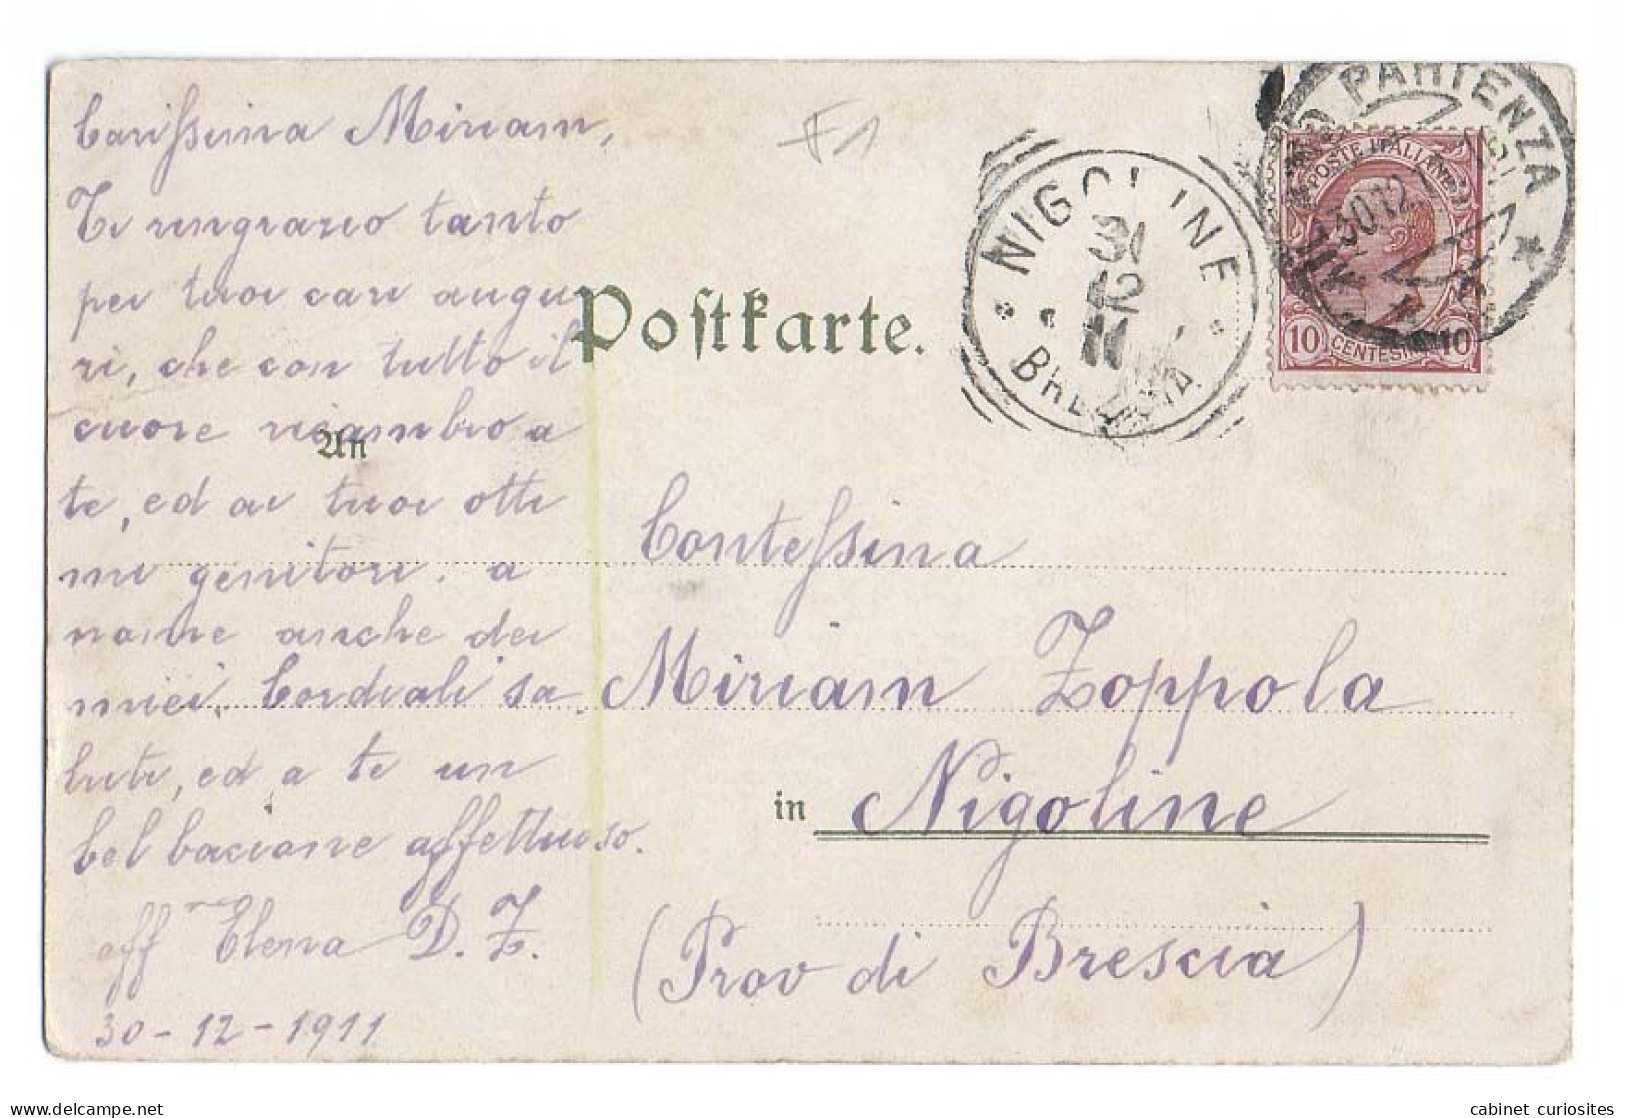 Carissima Miriam,
Ti ringrazio tanto
per tuoi cari augu
ri, che con tutto il
cuore ricambio a
te, ed ai tuoi otti
mi genitori. a
nome anche dei
miei. Cordiali sa
luti, ed a te un
bel bacione affettuoso.
aff Elena D. Z.
30-12-1911
F1
Postkarte.
An
NIGOLINE
31
12
11
BRESCIA
PARTENZA
30 12
POSTE ITALIANE
10 CENTESIMI 10
Contessina
Miriam Zoppola
in Nigoline
(Prov di Brescia)
cabinet curiosites